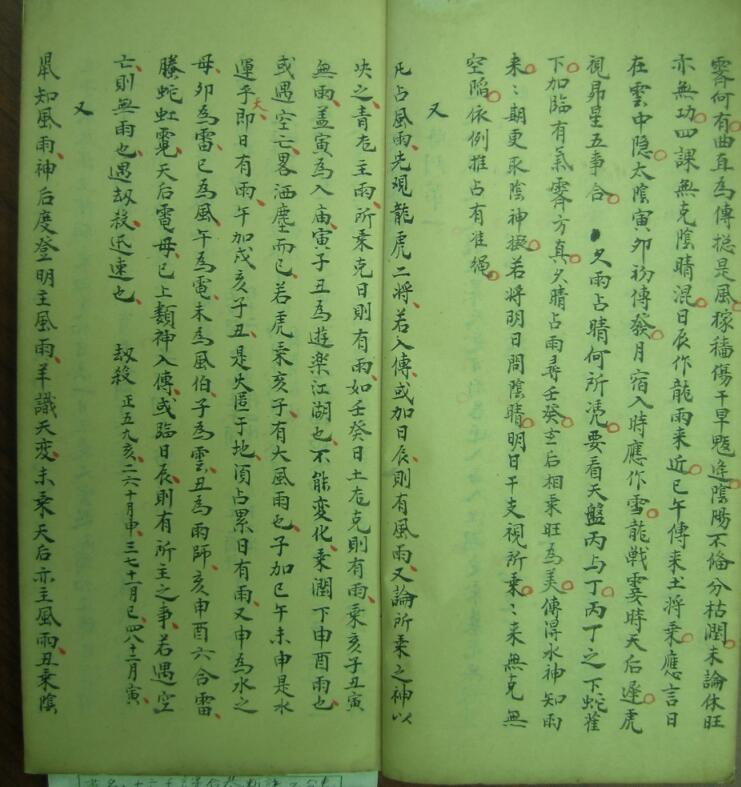 霽何有曲直為傳揔是風稼穡傷干旱魃逢陰陽不備分枯潤末論休旺
亦無功四課無克陰晴混日辰作龍雨来近巳午傳来土將乘應言日
在雲中隐太陰寅夘初傳發月宿入時應作雪龍戦雯時天后遅虎
視昴星五事合久雨占晴何所凴要看天盤丙与丁丙丁之下蛇雀
下加臨有氣霽方真久晴占雨尋壬癸玄后相乘旺為美傳得水神知雨
来〻期更取陰神擬若將明日問陰晴明日干支視所乘〻来無克無
空陷依例推占有准绳
又
凡占風雨先視龍虎二將若入傳或加日辰則有風雨又論所乘之神以
决之青龙主雨所乘克日則有雨如壬癸日土龙克則有雨乘亥子丑寅
無雨盖寅為入庙寅子丑為遊楽江湖也不能変化乘潤下申酉雨也
或遇空亡畧洒塵而已若虎乘亥子有大風雨也子加巳午未申是水
運乎天即日有雨午加戌亥子丑是火匿于地須占累日有雨又申為水之
母夘為雷巳為風午為電未為風伯子為雲丑為雨師亥申酉六合雷
螣蛇虹霓天后電母已上類神入傳或臨日辰則有所主之事若遇空
亡則無雨也遇刼殺迅速也 刼殺 正五九亥二六十月申三七十一月巳四八十二月寅
又
畢知風雨神后度登明主風雨羊識天変未乘天后亦主風雨丑乘陰